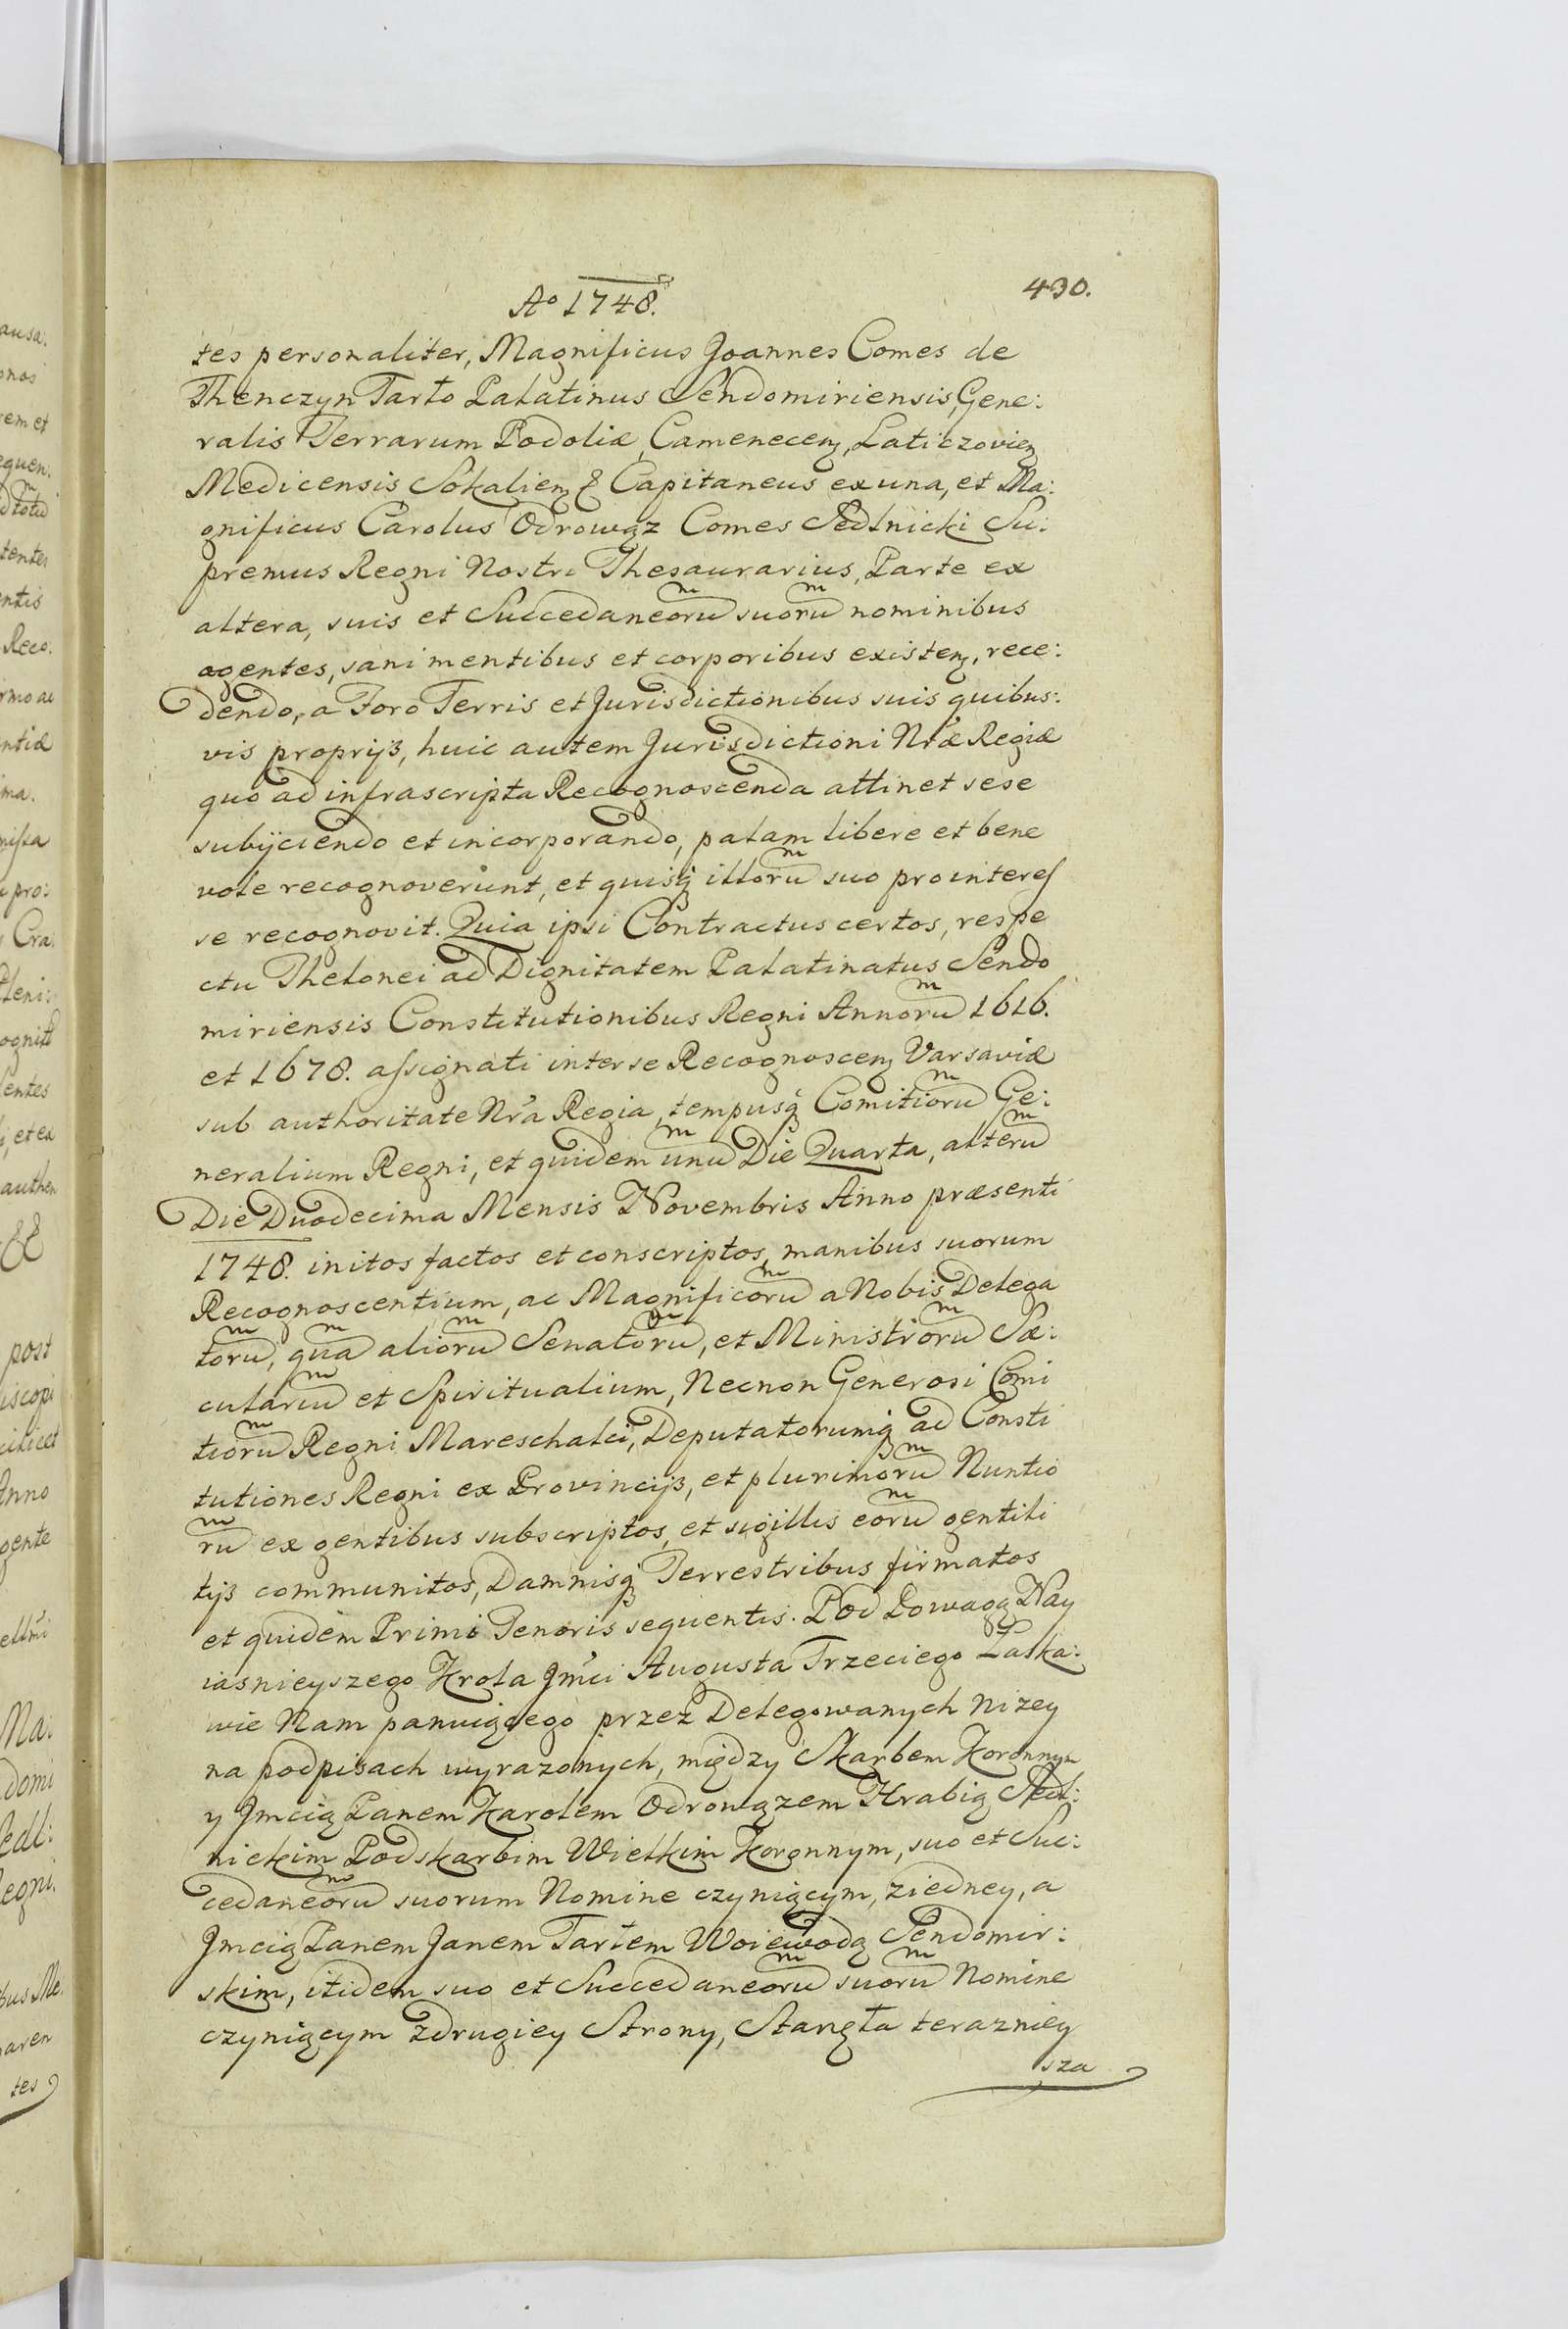 Aº 1748.
430.
tes personaliter, Magnificus Joannes Comes de
Thenczyn Tarło Palatinus Sendomiriensis, Gene:
ralis Terrarum Podoliæ, Camenecen, Laticzovien
Medicensis Sokalien & Capitaneus ex una, et Ma:
gnificus Carolus Odrowąz Comes Sedlnicki Su:
premus Regni Nostri Thesaurarius, Parte ex
altera, suis et Succedaneorũ suorũ nominibus
agentes, sani mentibus et corporibus existen, rece:
dendo, a Foro Terris et Jurisdictionibus suis quibus:
vis proprijs, huic autem Jurisdictioni Nr̃æ Regiæ
quo ad infrascripta Recognoscenda attinet sese
subijciendo et incorporando, palam libere et bene
vole recognoverunt, et quisq illorũ suo pro interes
se recognovit. Quia ipsi Contractus certos, respe
ctu Thelonei ad Dignitatem Palatinatus Sendo
miriensis Constitutionibus Regni Annorũ 1616.
et 1678. assignati inter se Recognoscen Varsaviæ
sub authoritate Nr̃a Regia, tempusq Comitiorũ Ge:
neralium Regni, et quidem unũ Die Quarta, alterũ
Die Duodecima Mensis Novembris Anno præsenti
1748. initos factos et conscriptos, manibus suorum
Recognoscentium, ac Magnificorũ a Nobis Delega
torũ, quã aliorũ Senatorũ, et Ministrorũ Sæ:
cularĩu et Spiritualium, Necnon Generosi Comi
tiorũ Regni Mareschalci, Deputatorumq ad Consti
tutiones Regni ex Provincijs, et plurimorũ Nuntio
rũ ex gentibus subscriptos, et sigillis eorũ gentili
tijs communitos, Damnisq Terrestribus firmatos
et quidem Primi Tenoris sequentis. Pod Powagą Nay
iasnieyszego Krola Jmci Augusta Trzeciego Łaska:
wie Nam panuiącego przez Delegowanych nizey
na podpisach wyrazonych, między Skarbem Koronnym
y Jmcią Panem Karolem Odrowązem Hrabią Sedl:
nickim Podskarbim Wielkim Koronnym, suo et Suc:
cedaneorũ suorum Nomine czyniącym, ziedney, a
Jmcią Panem Janem Tarłem Woiewodą Sendomir:
skim, itidem suo et Succedaneorũ suorũ Nomine
czyniącym zdrugiey Strony, Stanęła terazniey
sza